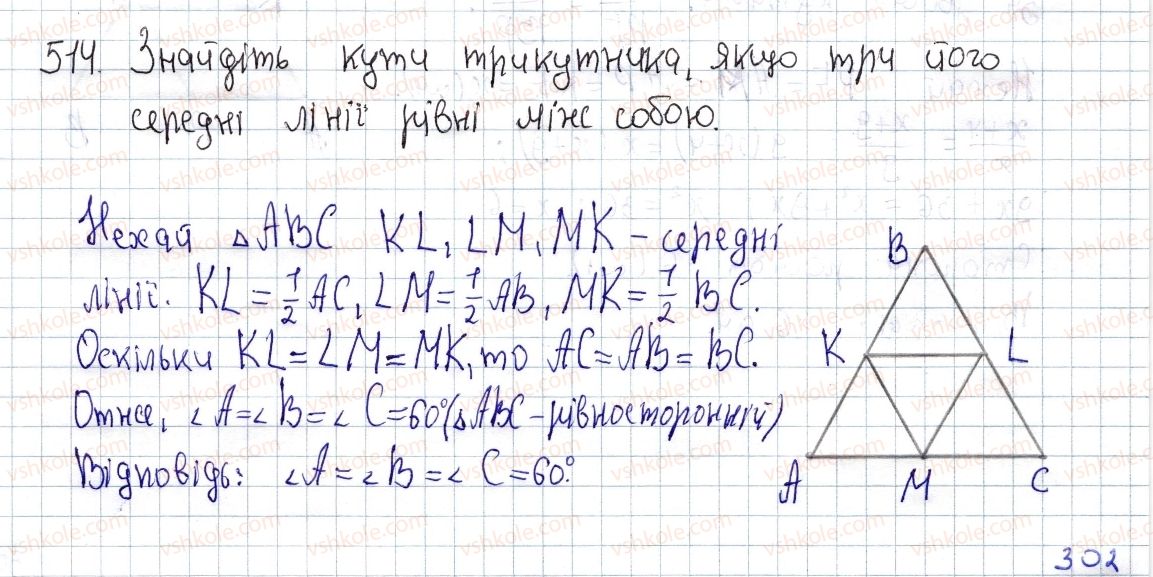 514. Знайдіть кути трикутника, якщо три його
середні лінії рівні між собою.
Нехай △ABC KL, LM, MK – середні
лінії. KL = 1/2 AC, LM = 1/2 AB, MK = 1/2 BC.
Оскільки KL = LM = MK, то AC = AB = BC.
Отже, ∠A = ∠B = ∠C = 60° (△ABC – рівносторонній)
Відповідь: ∠A = ∠B = ∠C = 60°.
B
K L
A M C
302
vshkole.com